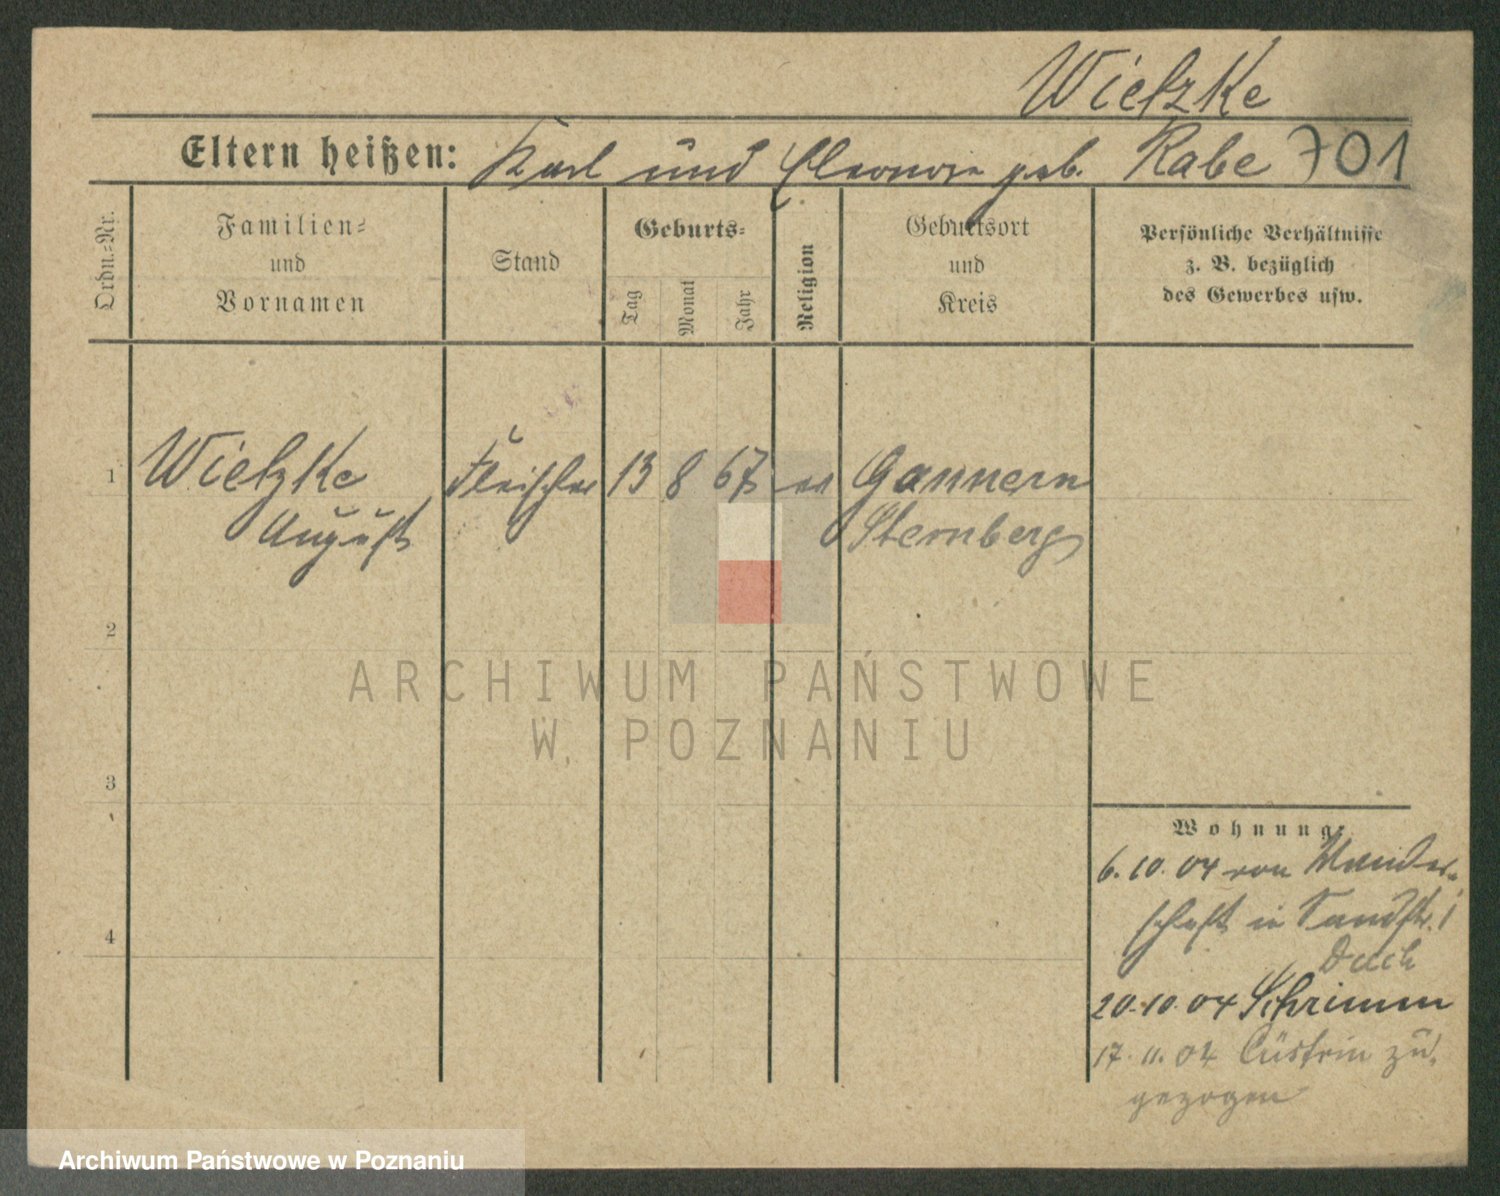 Wietzke
Eltern heißen: Karl und Eleonore geb. Rabe 701
Ordn.-Nr.
Familien-
und
Vornamen
Stand
Geburts-
Tag
Monat
Jahr
Religion
Geburtsort
und
Kreis
Persönliche Verhältnisse
z. B. bezüglich
des Gewerbes usw.
1 Wietzke Fleischer 13 8 67 ev Gannern
August Sternberg
2
3
4
Wohnung:
6.10.04 von Wander-
schaft in Sandstr. 1
Duch
20.10.04 Schrimm
17.11.04 Cüstrin zu-
gezogen
ARCHIWUM PAŃSTWOWE
W POZNANIU
Archiwum Państwowe w Poznaniu